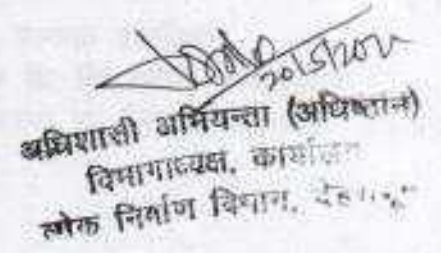 20/5/202
अधिशासी अभियन्ता (अधिष्ठान)
विभागाध्यक्ष, कार्यालय
लोक निर्माण विभाग,